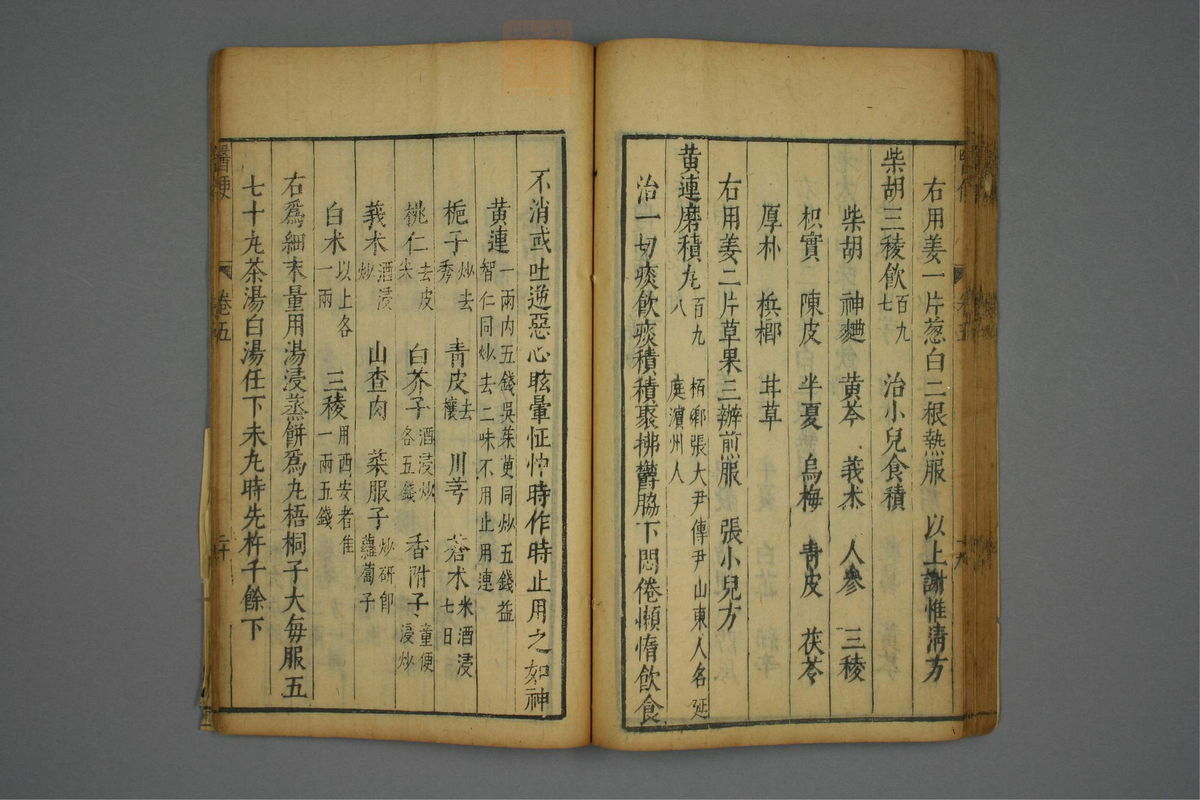 右用姜一片葱白二根熱服　以上謝惟清方
柴胡三稜飲百九七　治小兒食積
柴胡　神麯　黃芩　莪朮　人參　三稜
枳實　陳皮　半夏　烏梅　青皮　茯苓
厚朴　檳榔　甘草
右用姜二片草果三瓣煎服　張小兒方
黄連磨積丸百九八　栢鄉張大尹傳尹山東人名延庭濵州人
治一切痰飲痰積積聚拂鬱脇下悶倦懶惰飲食
醫便　卷五
不消或吐逆惡心眩暈怔忡時作時止用之如神
黄連一兩内五錢吳茱萸同炒五錢益智仁同炒去二味不用止用連
梔子炒去秀　青皮去穰　川芎　蒼术米酒浸七日
桃仁去皮尖　白芥子酒浸炒各五錢　香附子童便浸炒
莪术酒浸炒　山查肉　萊服子炒研卽蘿蔔子
白术以上各一兩　三稜用西安者佳一兩五錢
右爲細末量用湯浸蒸餅爲丸梧桐子大每服五
七十丸茶湯白湯任下未丸時先杵千餘下
醫便　卷五　二十